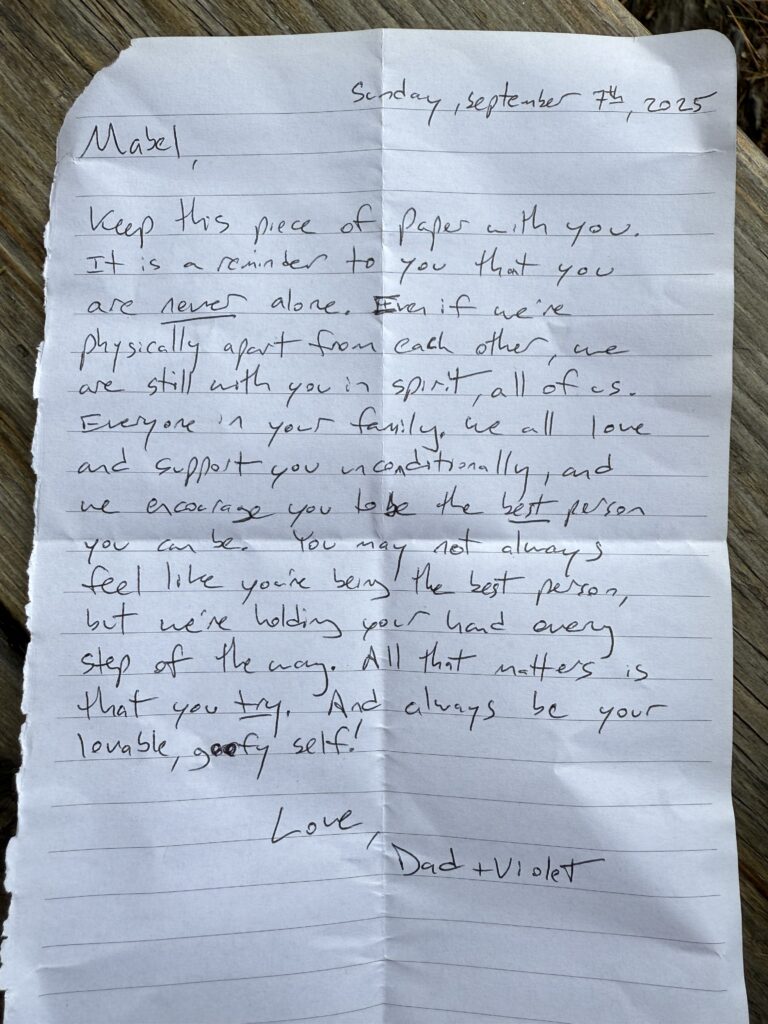 Sunday, september 7th, 2025
Mabel,
Keep this piece of paper with you.
It is a reminder to you that you
are never alone. Even if we're
physically apart from each other, we
are still with you in spirit, all of us.
Everyone in your family. We all love
and support you unconditionally, and
we encourage you to be the best person
you can be. You may not always
feel like you're being the best person,
but we're holding your hand every
step of the way. All that matters is
that you try. And always be your
lovable, goofy self!
Love,
Dad + Violet